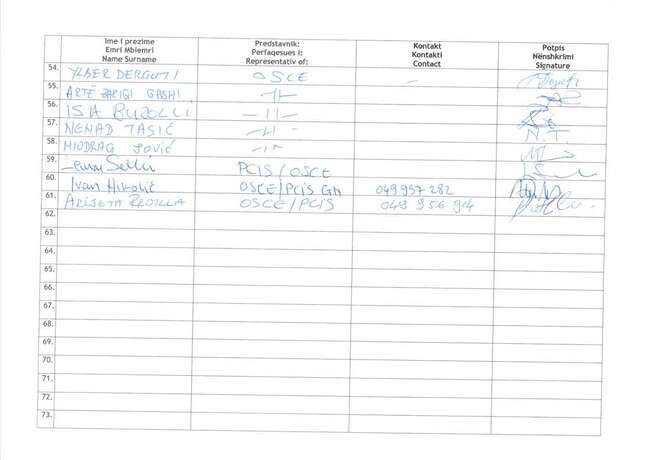 Ime i prezime
Emri Mbiemri
Name Surname
Predstavnik:
Perfaqesues i:
Representativ of:
Kontakt
Kontakti
Contact
Potpis
Nënshkrimi
Signature
54. YLBER DERGUTI OSCE -
55. ARTË ZARIQI GASHI -//-
56. ISA -//-
57. NENAD TASIĆ -//- N.T.
58. MIODRAG JOVIĆ -//-
59. PCIS/OSCE
60. Ivan Nikolić OSCE/PCIS GN 049 957 282
61. OSCE/PCIS 049 956 914
62.
63.
64.
65.
66.
67.
68.
69.
70.
71.
72.
73.